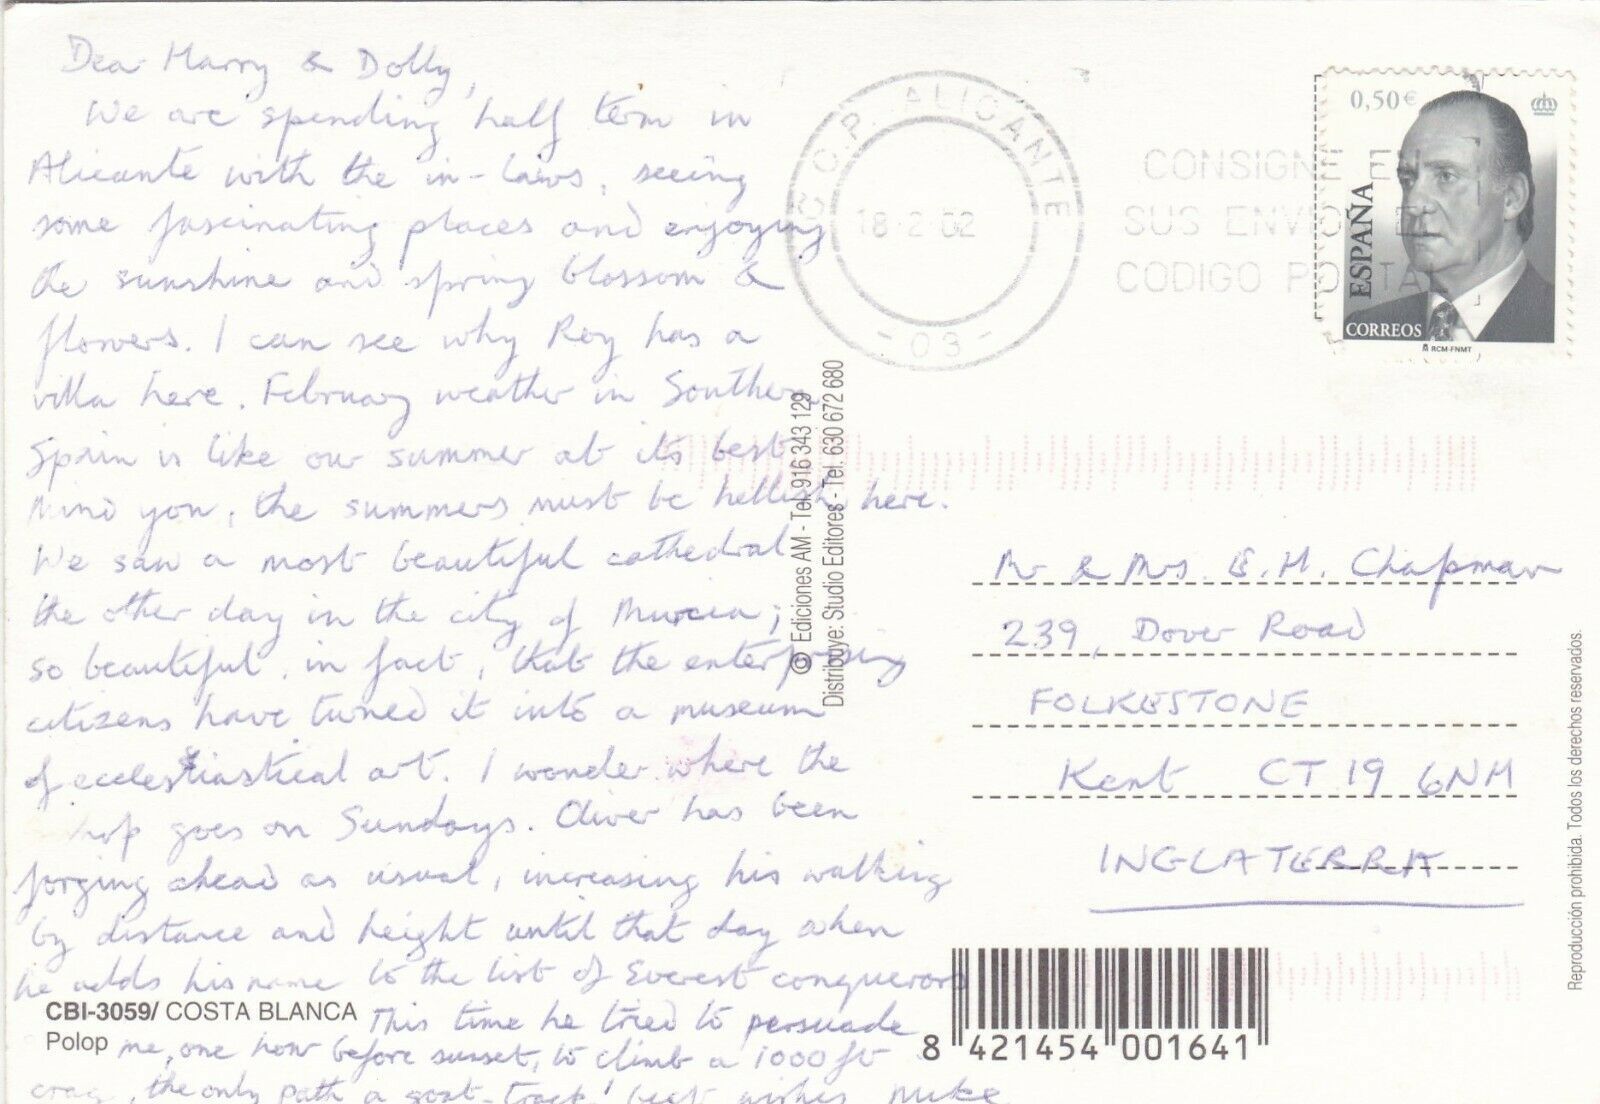 Dear Harry & Dolly,
We are spending half term in
Alicante with the in-laws, seeing
some fascinating places and enjoying
the sunshine and spring blossom &
flowers. I can see why Roy has a
villa here. February weather in Southern
Spain is like our summer at its best
Mind you, the summers must be hellish here.
We saw a most beautiful cathedral
the other day in the city of Murcia;
so beautiful, in fact, that the enterprising
citizens have turned it into a museum
of ecclesiastical art. I wonder where the
goes on Sundays. Oliver has been
forging ahead as usual, increasing his walking
by distance and height until that day when
he adds his name to the list of Everest conquerors
This time he tried to persuade
me, one hour before sunset, to climb a 1000 ft
crag, the only path a goat-track! best wishes Mike
CBI-3059/ COSTA BLANCA
Polop
© Ediciones AM - Tel. 916 343 129
Distribuye: Studio Editores - Tel. 630 672 680
C.P. ALICANTE
18-2-02
- 03 -
CONSIGNE EN
SUS ENVIOS EL
CODIGO POSTAL
0,50€
ESPAÑA
CORREOS
RCM-FNMT
Mr & Mrs. E.H. Chapman
239, Dover Road
FOLKESTONE
Kent CT19 6NH
INGLATERRA
8 421454 001641
Reproducción prohibida. Todos los derechos reservados.